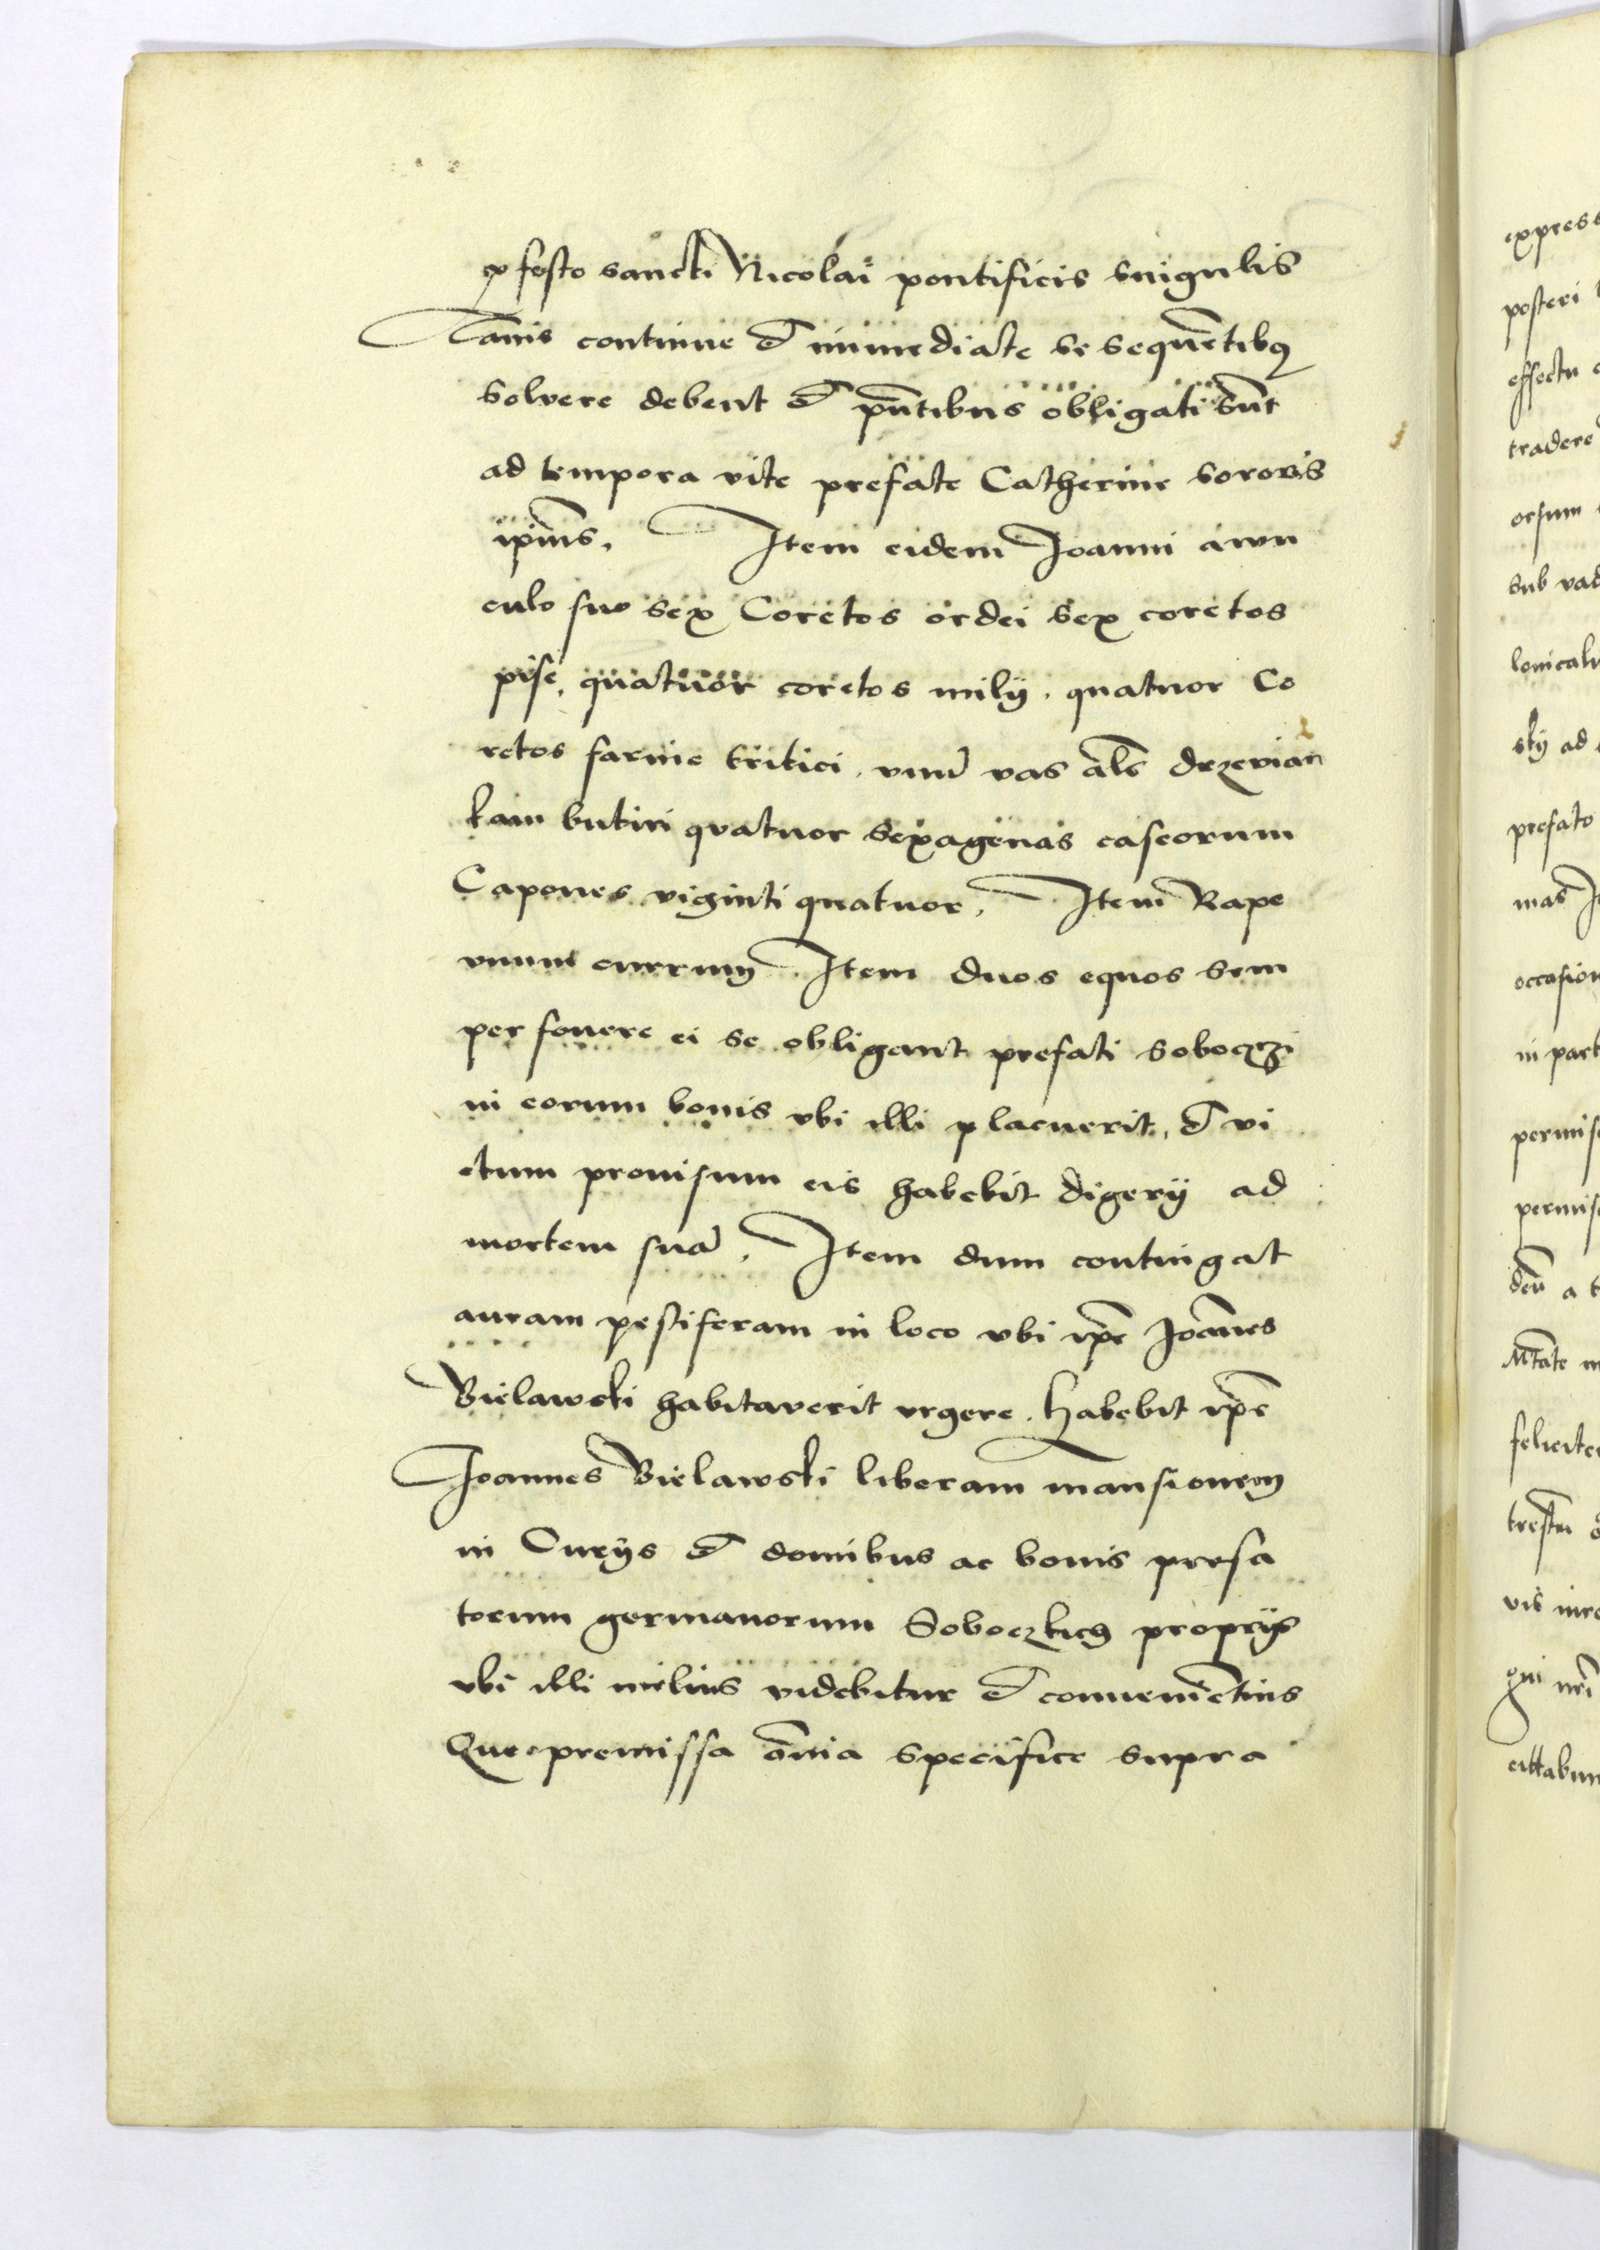 ex festo sancti Nicolai pontificis singulis
annis continue et immediate se sequētibꝰ
solvere debent et pn̄tibus obligati sunt
ad tempora vite prefate Catherine sororis
ipīus. Item eidem Joanni avun
culo suo sex Coretos ordei sex coretos
pise, quatuor coretos milij. quatuor Co
retos farine tritici. unū vas als̄ drzevian
kam butiri quatuor sexagenas caseorum
Capones viginti quatuor. Item Rape
unum currum Item duos equos sem
per fovere ei se obligant prefati Soboczzi
in eorum bonis ubi illi placuerit, et vi
ctum provisum eis habebit digerij ad
mortem suā. Item dum contingat
auram pestiferam in loco ubi ip̄e Joānes
Bielawski habitaverit urgere. habebit ip̄e
Joannes Bielawski liberam mansionem
in Curijs et domibus ac bonis prefa
torum germanorum Soboczkich proprijs
ubi illi melius videbitur et conveniētius
Que premissa om̄ia specifice supra
express
posteri
effectu
tradere
orsum
sub vad
lonicalu
skij ad
prefato
mas
occasion
in part
permis
permis
a
felicite
vis